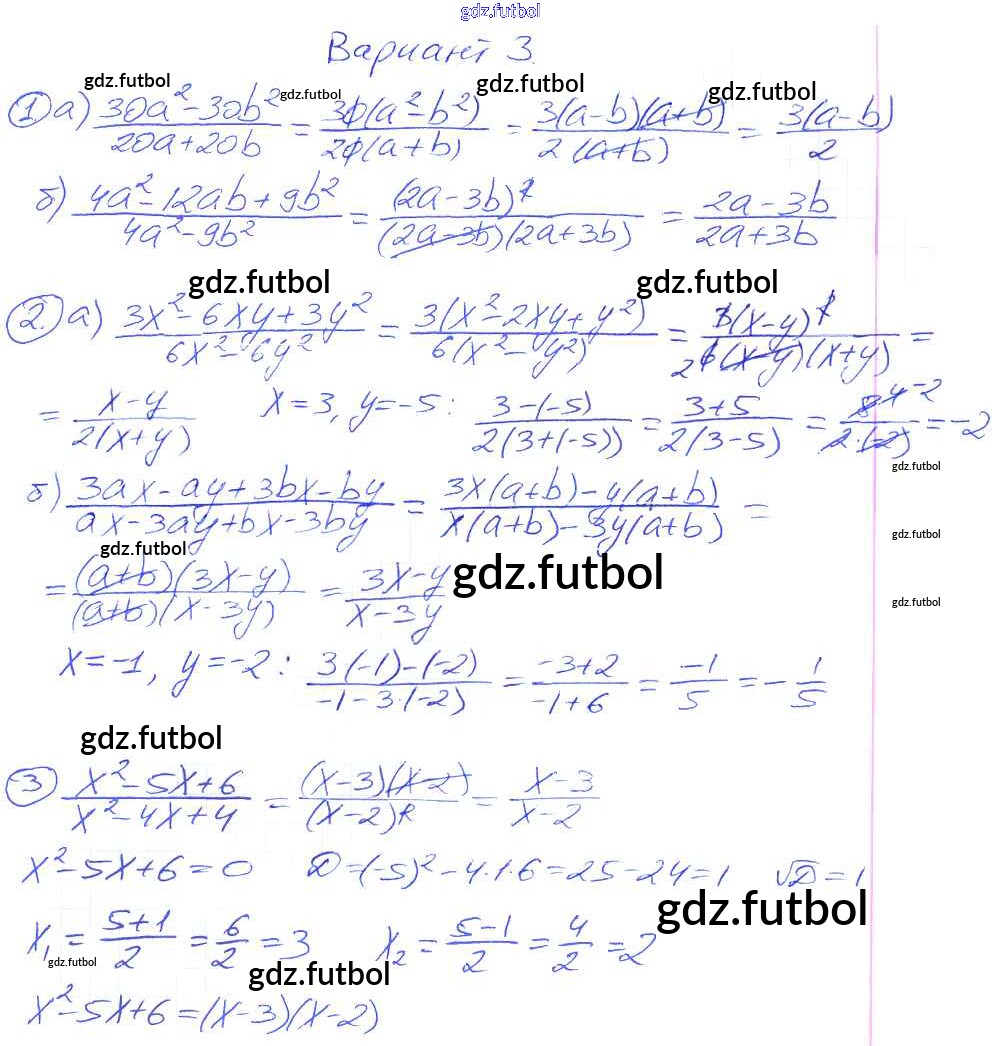 gdz.futbol
Вариант 3.
gdz.futbol gdz.futbol gdz.futbol gdz.futbol
① а) (30a² - 30b²)/(20a + 20b) = (30(a² - b²))/(20(a + b)) = (3(a - b)(a + b))/(2(a + b)) = (3(a - b))/2
б) (4a² - 12ab + 9b²)/(4a² - 9b²) = (2a - 3b)²/((2a - 3b)(2a + 3b)) = (2a - 3b)/(2a + 3b)
gdz.futbol gdz.futbol
② а) (3x² - 6xy + 3y²)/(6x² - 6y²) = (3(x² - 2xy + y²))/(6(x² - y²)) = (3(x - y)²)/(6(x - y)(x + y)) =
= (x - y)/(2(x + y)) x = 3, y = -5: (3 - (-5))/(2(3 + (-5))) = (3 + 5)/(2(3 - 5)) = 8/(2·(-2)) = -2
gdz.futbol
б) (3ax - ay + 3bx - by)/(ax - 3ay + bx - 3by) = (3x(a + b) - y(a + b))/(x(a + b) - 3y(a + b)) =
gdz.futbol
gdz.futbol gdz.futbol
= ((a + b)(3x - y))/((a + b)(x - 3y)) = (3x - y)/(x - 3y)
gdz.futbol
x = -1, y = -2: (3(-1) - (-2))/(-1 - 3·(-2)) = (-3 + 2)/(-1 + 6) = -1/5 = -1/5
gdz.futbol
③ (x² - 5x + 6)/(x² - 4x + 4) = ((x - 3)(x - 2))/(x - 2)² = (x - 3)/(x - 2)
x² - 5x + 6 = 0 D = (-5)² - 4·1·6 = 25 - 24 = 1 √D = 1
gdz.futbol
x₁ = (5 + 1)/2 = 6/2 = 3 x₂ = (5 - 1)/2 = 4/2 = 2
gdz.futbol gdz.futbol
x² - 5x + 6 = (x - 3)(x - 2)